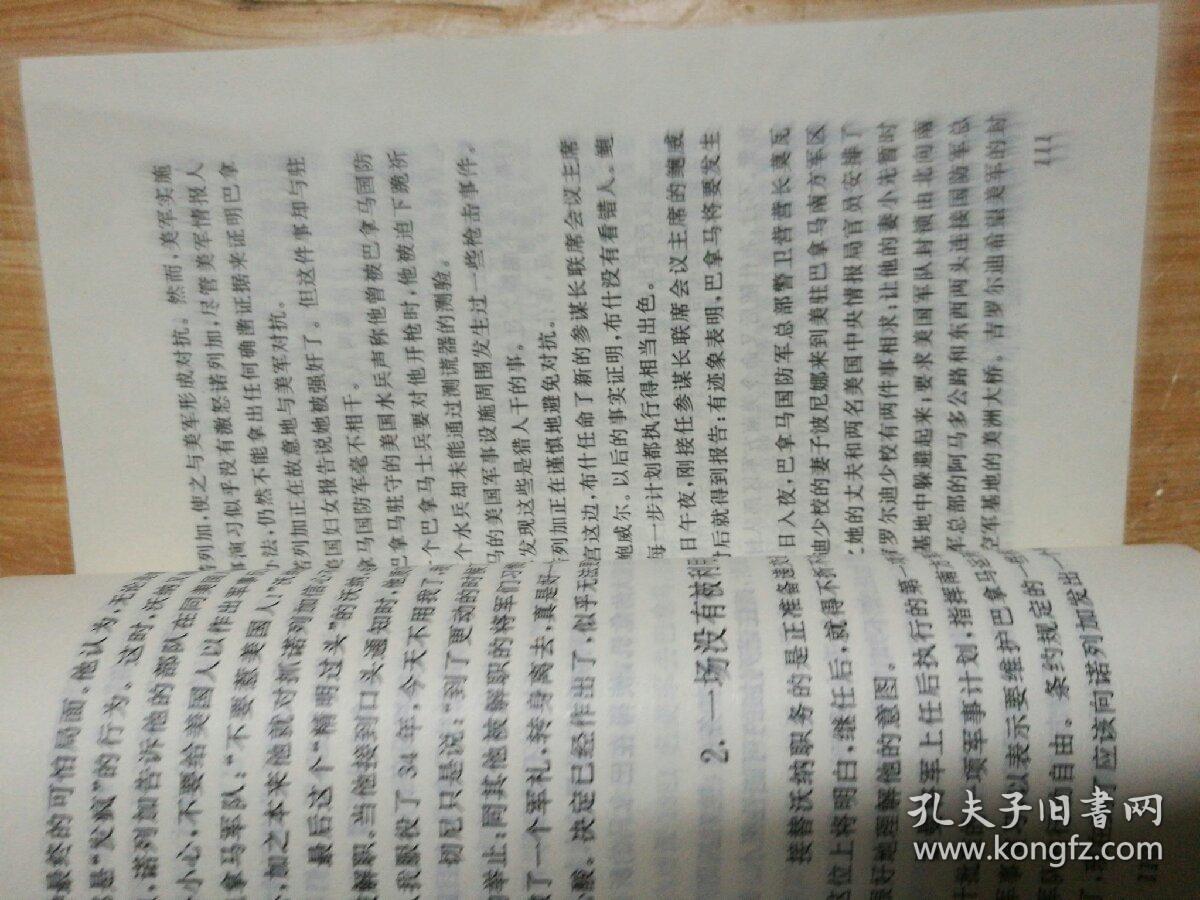 最终的可怕局面。他认为,无论
是“发疯”的行为。这时,沃纳
,诺列加告诉他的部队在同美国
小心,不要给美国人以作出军事
拿马军队:“不要惹美国人!”沃
,加之本来他就对抓诺列加信心
最后这个“精明过头”的沃纳
解职。当他接到口头通知时,他
我服役了34年,今天不用我了,
切尼只是说:“到了更动的时候
举止;同其他被解职的将军们习惯
了一个军礼,转身离去,真是好
酸。决定已经作出了,似乎无法
2.一场没有被利
接替沃纳职务的是正准备退
位上将明白,继任后,就得不折不
好地理解他的意图。
将军上任后执行的第一
项军事计划,指挥南方
,以表示要维护巴拿马
自由。条约规定的一
应该向诺列加发出一
列加,使之与美军形成对抗。然而,美军实施
演习似乎没有激怒诺列加,尽管美军情报人
法,仍然不能拿出任何确凿证据来证明巴拿
列加正在故意地与美军对抗。
国妇女报告说她被强奸了。但这件事却与驻
拿马国防军毫不相干。
巴拿马驻守的美国水兵声称他曾被巴拿马国防
个巴拿马士兵要对他开枪时,他被迫下跪祈
个水兵却未能通过测谎器的测验。
马的美国军事设施周围发生过一些枪击事件。
发现这些是猎人干的事。
列加正在谨慎地避免对抗。
宫这边,布什任命了新的参谋长联席会议主席
鲍威尔。以后的事实证明,布什没有看错人。鲍
每一步计划都执行得相当出色。
日午夜,刚接任参谋长联席会议主席的鲍威
时后就得到报告:有迹象表明,巴拿马将要发生
日入夜,巴拿马国防军总部警卫营营长莫瓦
迪少校的妻子波尼娜来到美驻巴拿马南方军区
她的丈夫和两名美国中央情报局官员安排了
吉罗尔迪少校有两件事相求:让他的妻小先暂时
基地中躲避起来;要求美国军队封锁由北向南
军总部的阿马多公路和东西两头连接国防军总
空军基地的美洲大桥。吉罗尔迪希望美军的封
111
孔夫子旧书网
www.kongfz.com